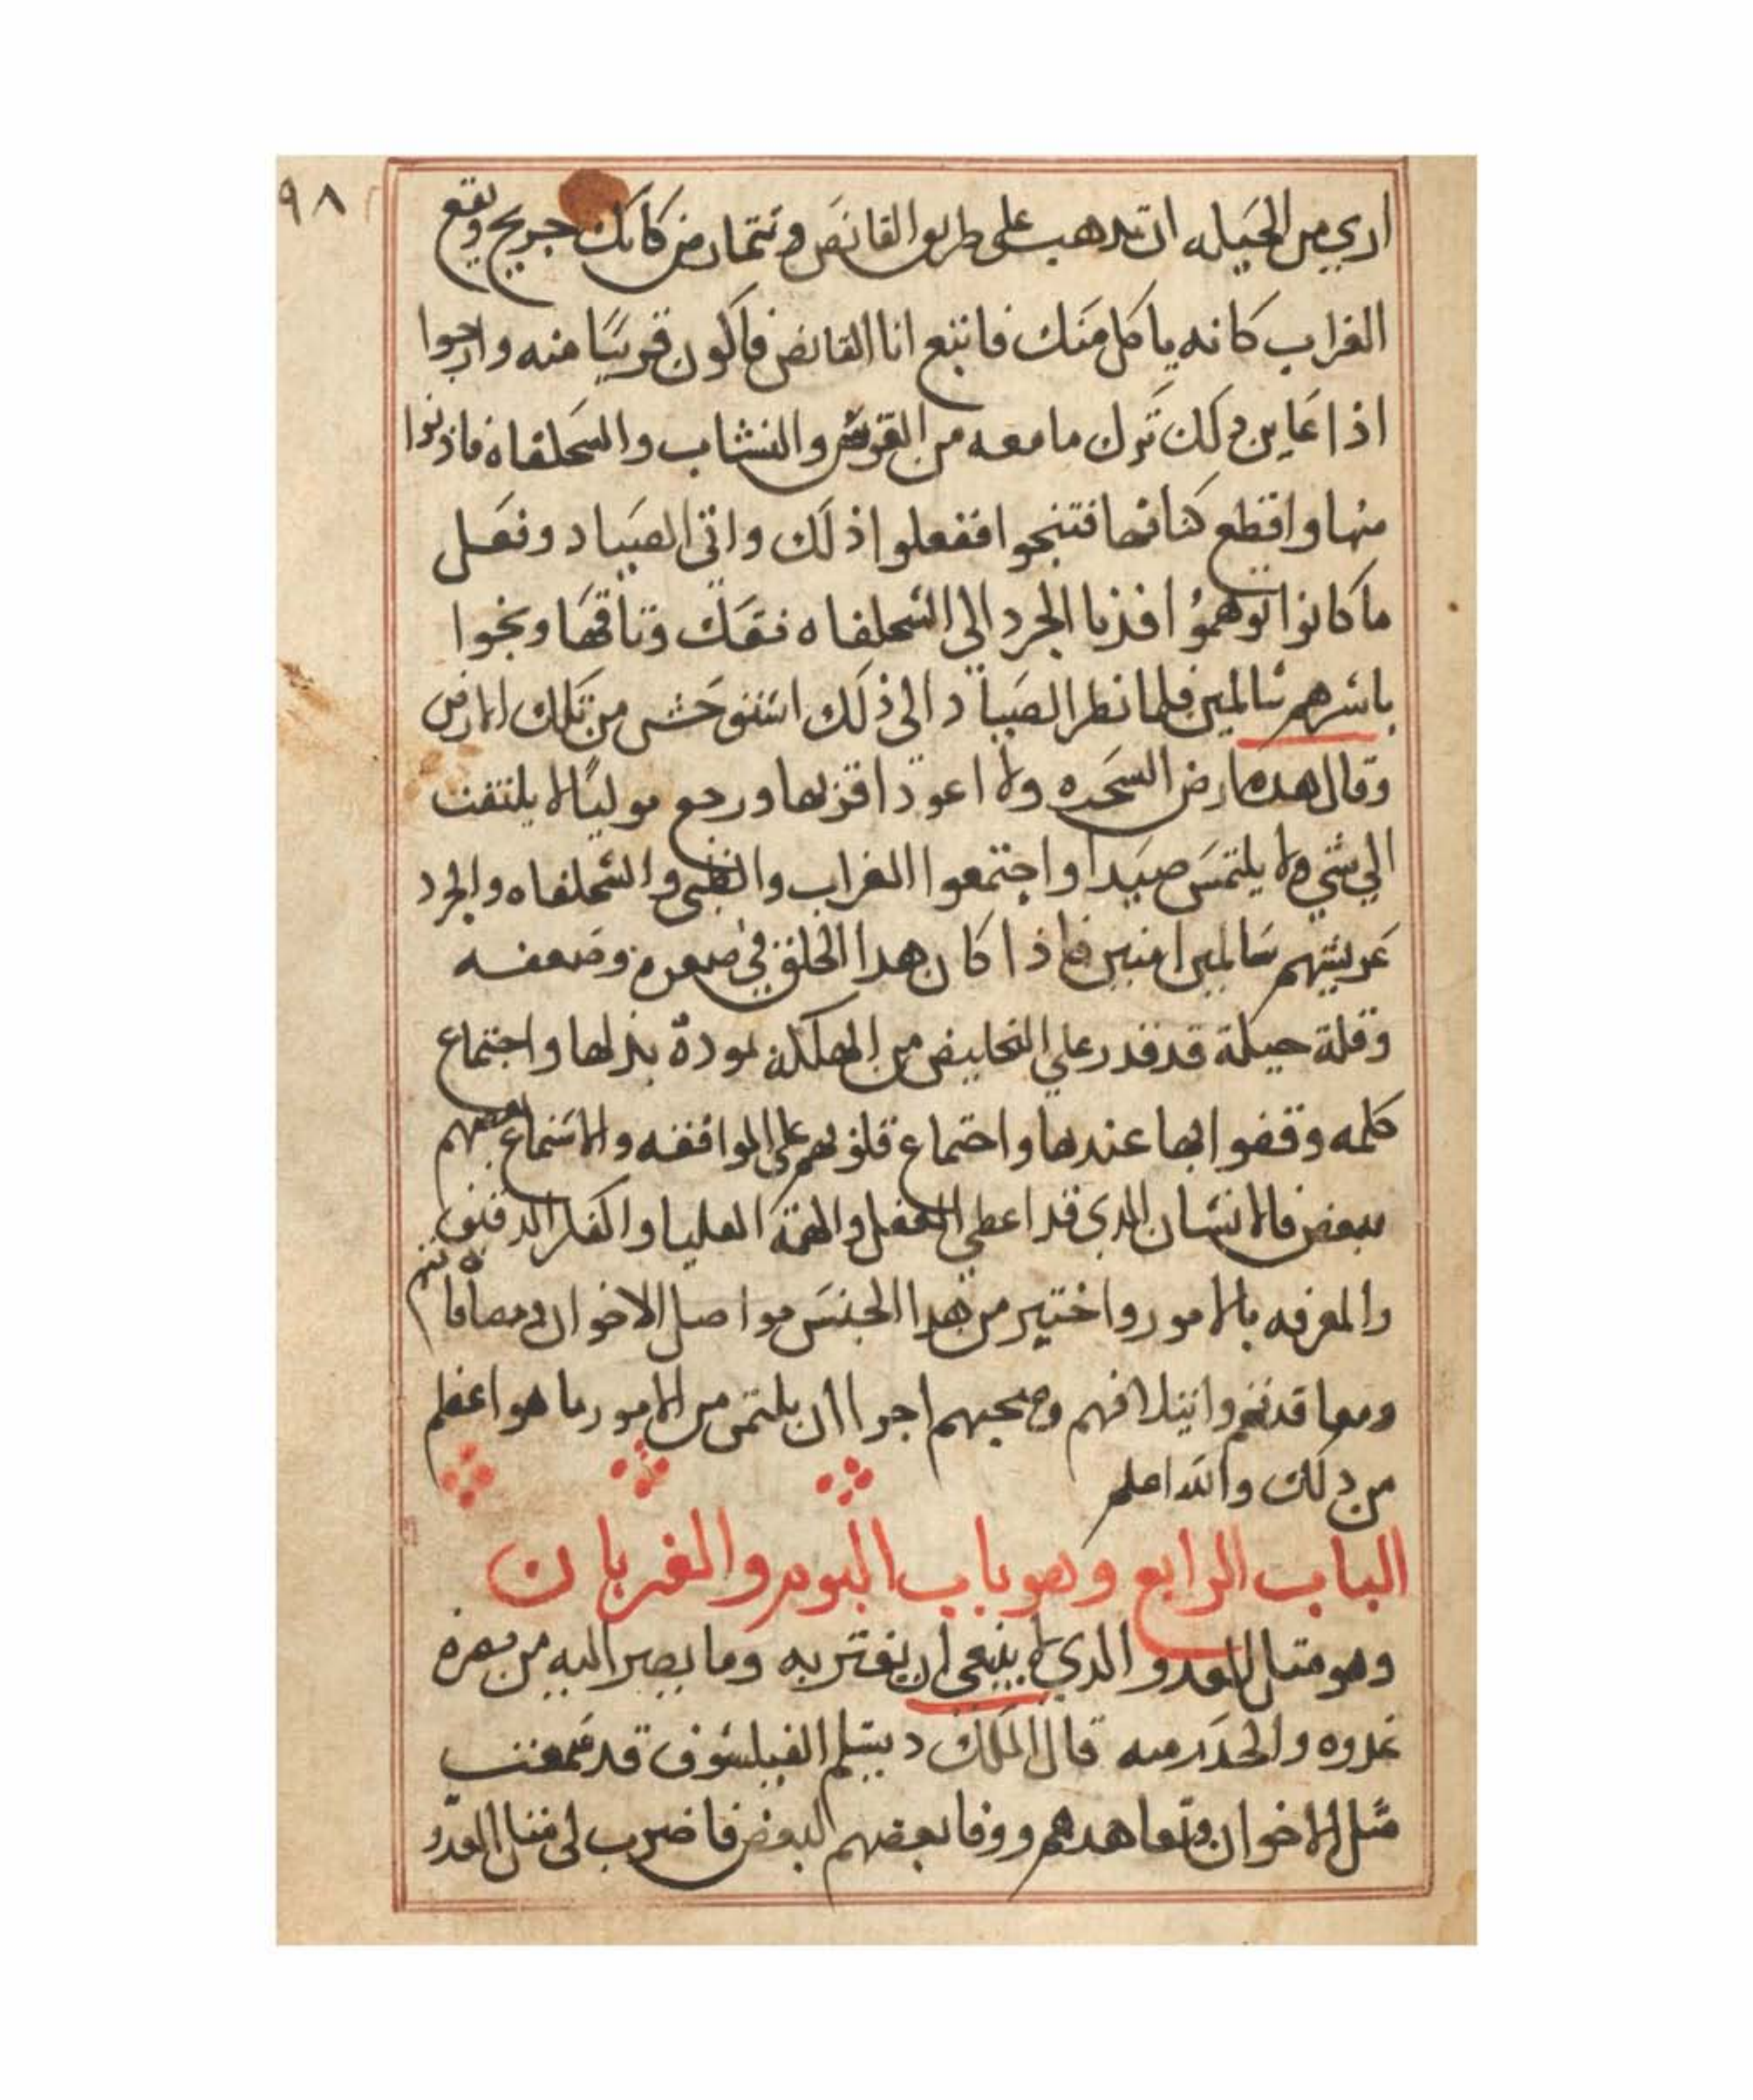 ٩٨
اري من الحيله ان تدهب على طريق القانص وتتمارض كانك جريح ويقع
الغراب كانه ياكل منك فاتبع انا القانص فاكون قريبًا منه وارجوا
اذا عاين دلك ترك ما معه من القوس والنشاب والسحلفاه فاذنوا
منها واقطع كتافها فتنجوا ففعلوا ذلك واتى الصياد وفعل
ما كانوا توهموُا فدنا الجرد الى السحلفاه ففك وتاقها ونجوا
باسرهم سالمين فلما نظر الصياد الى ذلك استوحش من تلك الارض
وقال هده ارض السحره ولا اعود اقربها ورجع موليًا لا يلتفت
الي شي ولا يلتمس صيدا واجتمعوا الغراب والظبي والسحلفاه والجرد
عريشهم سالمين امنين فاذا كان هدا الخلق في صغره وضعفه
وقلة حيلة قد قدر على التخليص من الهلكة لمودة بدلها واجتماع
كلمه وقفوا بها عندها واجتماع قلوبهم على الموافقه والاستماع بعضهم
ببعض فالانسان الدي قد اعطي العقل والهمّة العليا والفكر الدقيق
والمعرفه بالامور واختير من هدا الجنس مواصل الاخوان ومصافاتهم
ومعاقدتهم وايتلافهم وصحبهم اجرا ان يلتمس من الامور ما هو اعظم
من دلك والله اعلم
الباب الرابع وهو باب البوم والغربان
وهو متل العدو الدي لا ينبغي ان يغتر به وما يصير اليه من
عدوه والحدر منه قال الملك دبشلم الفيلسوف قد سمعت
مثل الاخوان وتعاهدهم ووفا بعضهم لبعض فاضرب لي مثل العدّو